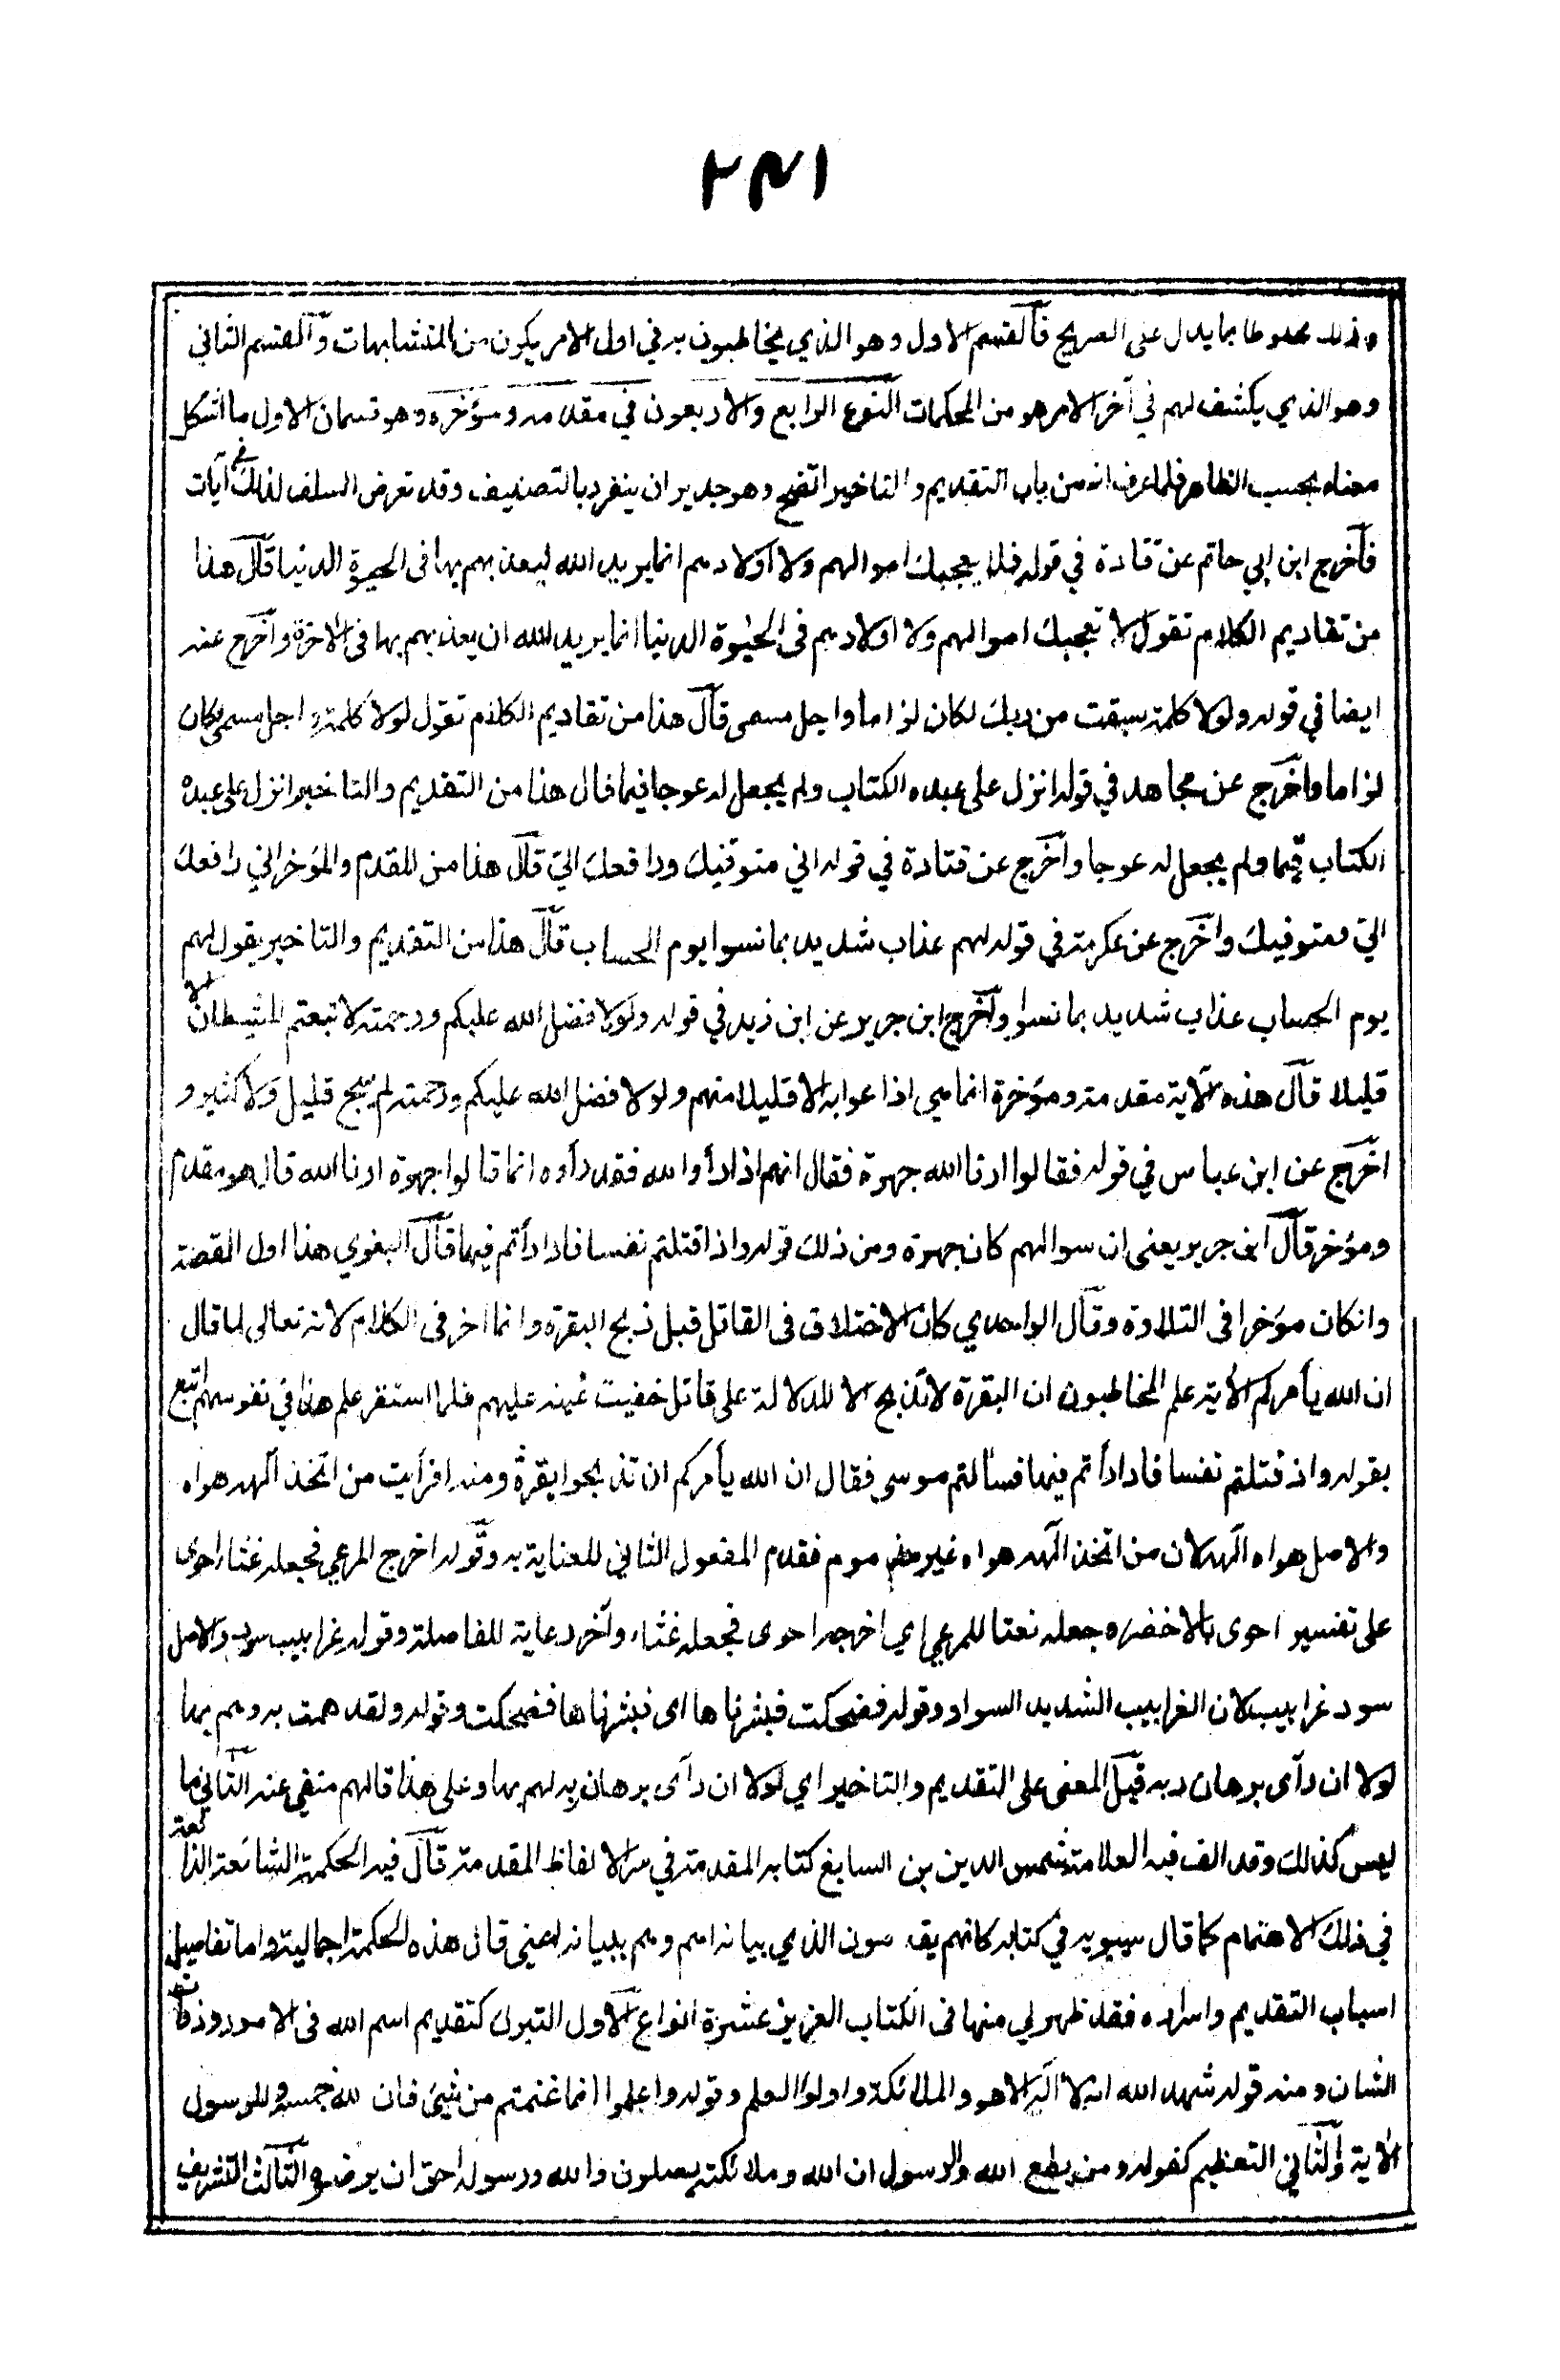 ٢٣١
وذلك مخلوطا بما يدل على الصريح فالقسم الاول وهو الذي يخاطبون به في اول الامر يكون من المتشابهات والقسم الثاني
وهو الذي يكشف لهم في آخر الامر هو من المحكمات النوع الرابع والاربعون في مقدمه ومؤخره وهو قسمان الاول ما اشكل
معناه بحسب الظاهر فلما عرف انه من باب التقديم والتاخير اتضح وهو جدير ان ينفرد بالتصنيف وقد تعرض السلف لذلك في آيات
فاخرج ابن ابي حاتم عن قتادة في قوله فلا يعجبك اموالهم ولا اولادهم انما يريد الله ليعذبهم بها فى الحيوة الدنيا قال هذا
من تقاديم الكلام تقول لا تعجبك اموالهم ولا اولادهم فى الحيوة الدنيا انما يريد الله ان يعذبهم بها فى الاخرة واخرج عنه
ايضا في قوله ولولا كلمة سبقت من ربك لكان لزاما واجل مسمى قال هذا من تقاديم الكلام تقول لولا كلمة واجل مسمى لكان
لزاما واخرج عن مجاهد في قوله انزل على عبده الكتاب ولم يجعل له عوجا قيما قال هذا من التقديم والتاخير انزل على عبده
الكتاب قيما ولم يجعل له عوجا واخرج عن قتادة في قوله اني متوفيك ورافعك الي قال هذا من المقدم والمؤخر اني رافعك
الي ومتوفيك واخرج عن عكرمة في قوله لهم عذاب شديد بما نسوا يوم الحساب قال هذا من التقديم والتاخير يقول لهم
يوم الحساب عذاب شديد بما نسوا واخرج ابن جرير عن ابن زيد في قوله ولولا فضل الله عليكم ورحمته لاتبعتم الشيطان الا
قليلا قال هذه الآية مقدمة ومؤخرة انما هي اذاعوا به الا قليلا منهم ولولا فضل الله عليكم ورحمته لم ينج قليل ولا كثير و
اخرج عن ابن عباس في قوله فقالوا ارنا الله جهرة فقال انهم اذا رأوا الله فقد رأوه انما قالوا جهرة ارنا الله قال هو مقدم
ومؤخر قال ابن جرير يعنى ان سوالهم كان جهرة ومن ذلك قوله واذا قتلتم نفسا فادارأتم فيها قال البغوي هذا اول القصة
وانكان مؤخرا فى التلاوة وقال الواحدي كان الاختلاف فى القاتل قبل ذبح البقرة وانما اخر فى الكلام لانه تعالى لما قال
ان الله يأمركم الآية علم المخاطبون ان البقرة لا تذبح الا للدلالة على قاتل خفيت عينه عليهم فلما استقر علم هذا في نفوسهم اتبع
بقوله واذ قتلتم نفسا فادارأتم فيها فسألتم موسى فقال ان الله يأمركم ان تذبحوا بقرة ومنه افرأيت من اتخذ الهه هواه
والاصل هواه الهه لان من اتخذ الهه هواه غير مذموم فقدم المفعول الثاني للعناية به وقوله اخرج المرعي فجعله غثاء احوى
على تفسير احوى بالاخضر وجعله نعتا للمرعي اي اخرجه احوى فجعله غثاء وآخر رعاية للفاصلة وقوله غرابيب سود والاصل
سود غرابيب لان الغرابيب الشديد السواد وقوله فضحكت فبشرناها اى فبشرناها فضحكت وقوله ولقد همت به وهم بها
لولا ان رآى برهان ربه قيل المعنى على التقديم والتاخير اي لولا ان رآى برهان ربه لهم بها وعلى هذا فالهم منفي عنه الثاني ما
ليس كذلك وقد الف فيه العلامة شمس الدين بن السايغ كتابه المقدمة في سر الالفاظ المقدمة قال فيه الحكمة الشائعة الذائعة
في ذلك الاهتمام كما قال سيبويه في كتابه كانهم يقدمون الذي بيانه اهم وهم ببيانه اعنى قال هذه الحكمة اجمالية واما تفاصيل
اسباب التقديم واسراره فقد ظهر لي منها فى الكتاب العزيز عشرة انواع الاول التبرك كتقديم اسم الله فى الامور ذوات
الشان ومنه قوله شهد الله انه لا اله الا هو والملائكة واولوا العلم وقوله واعلموا انما غنمتم من شيئ فان لله خمسه وللرسول
الآية والثاني التعظيم كقوله ومن يطع الله والرسول ان الله وملائكته يصلون والله ورسوله احق ان يرضوه الثالث التشريف